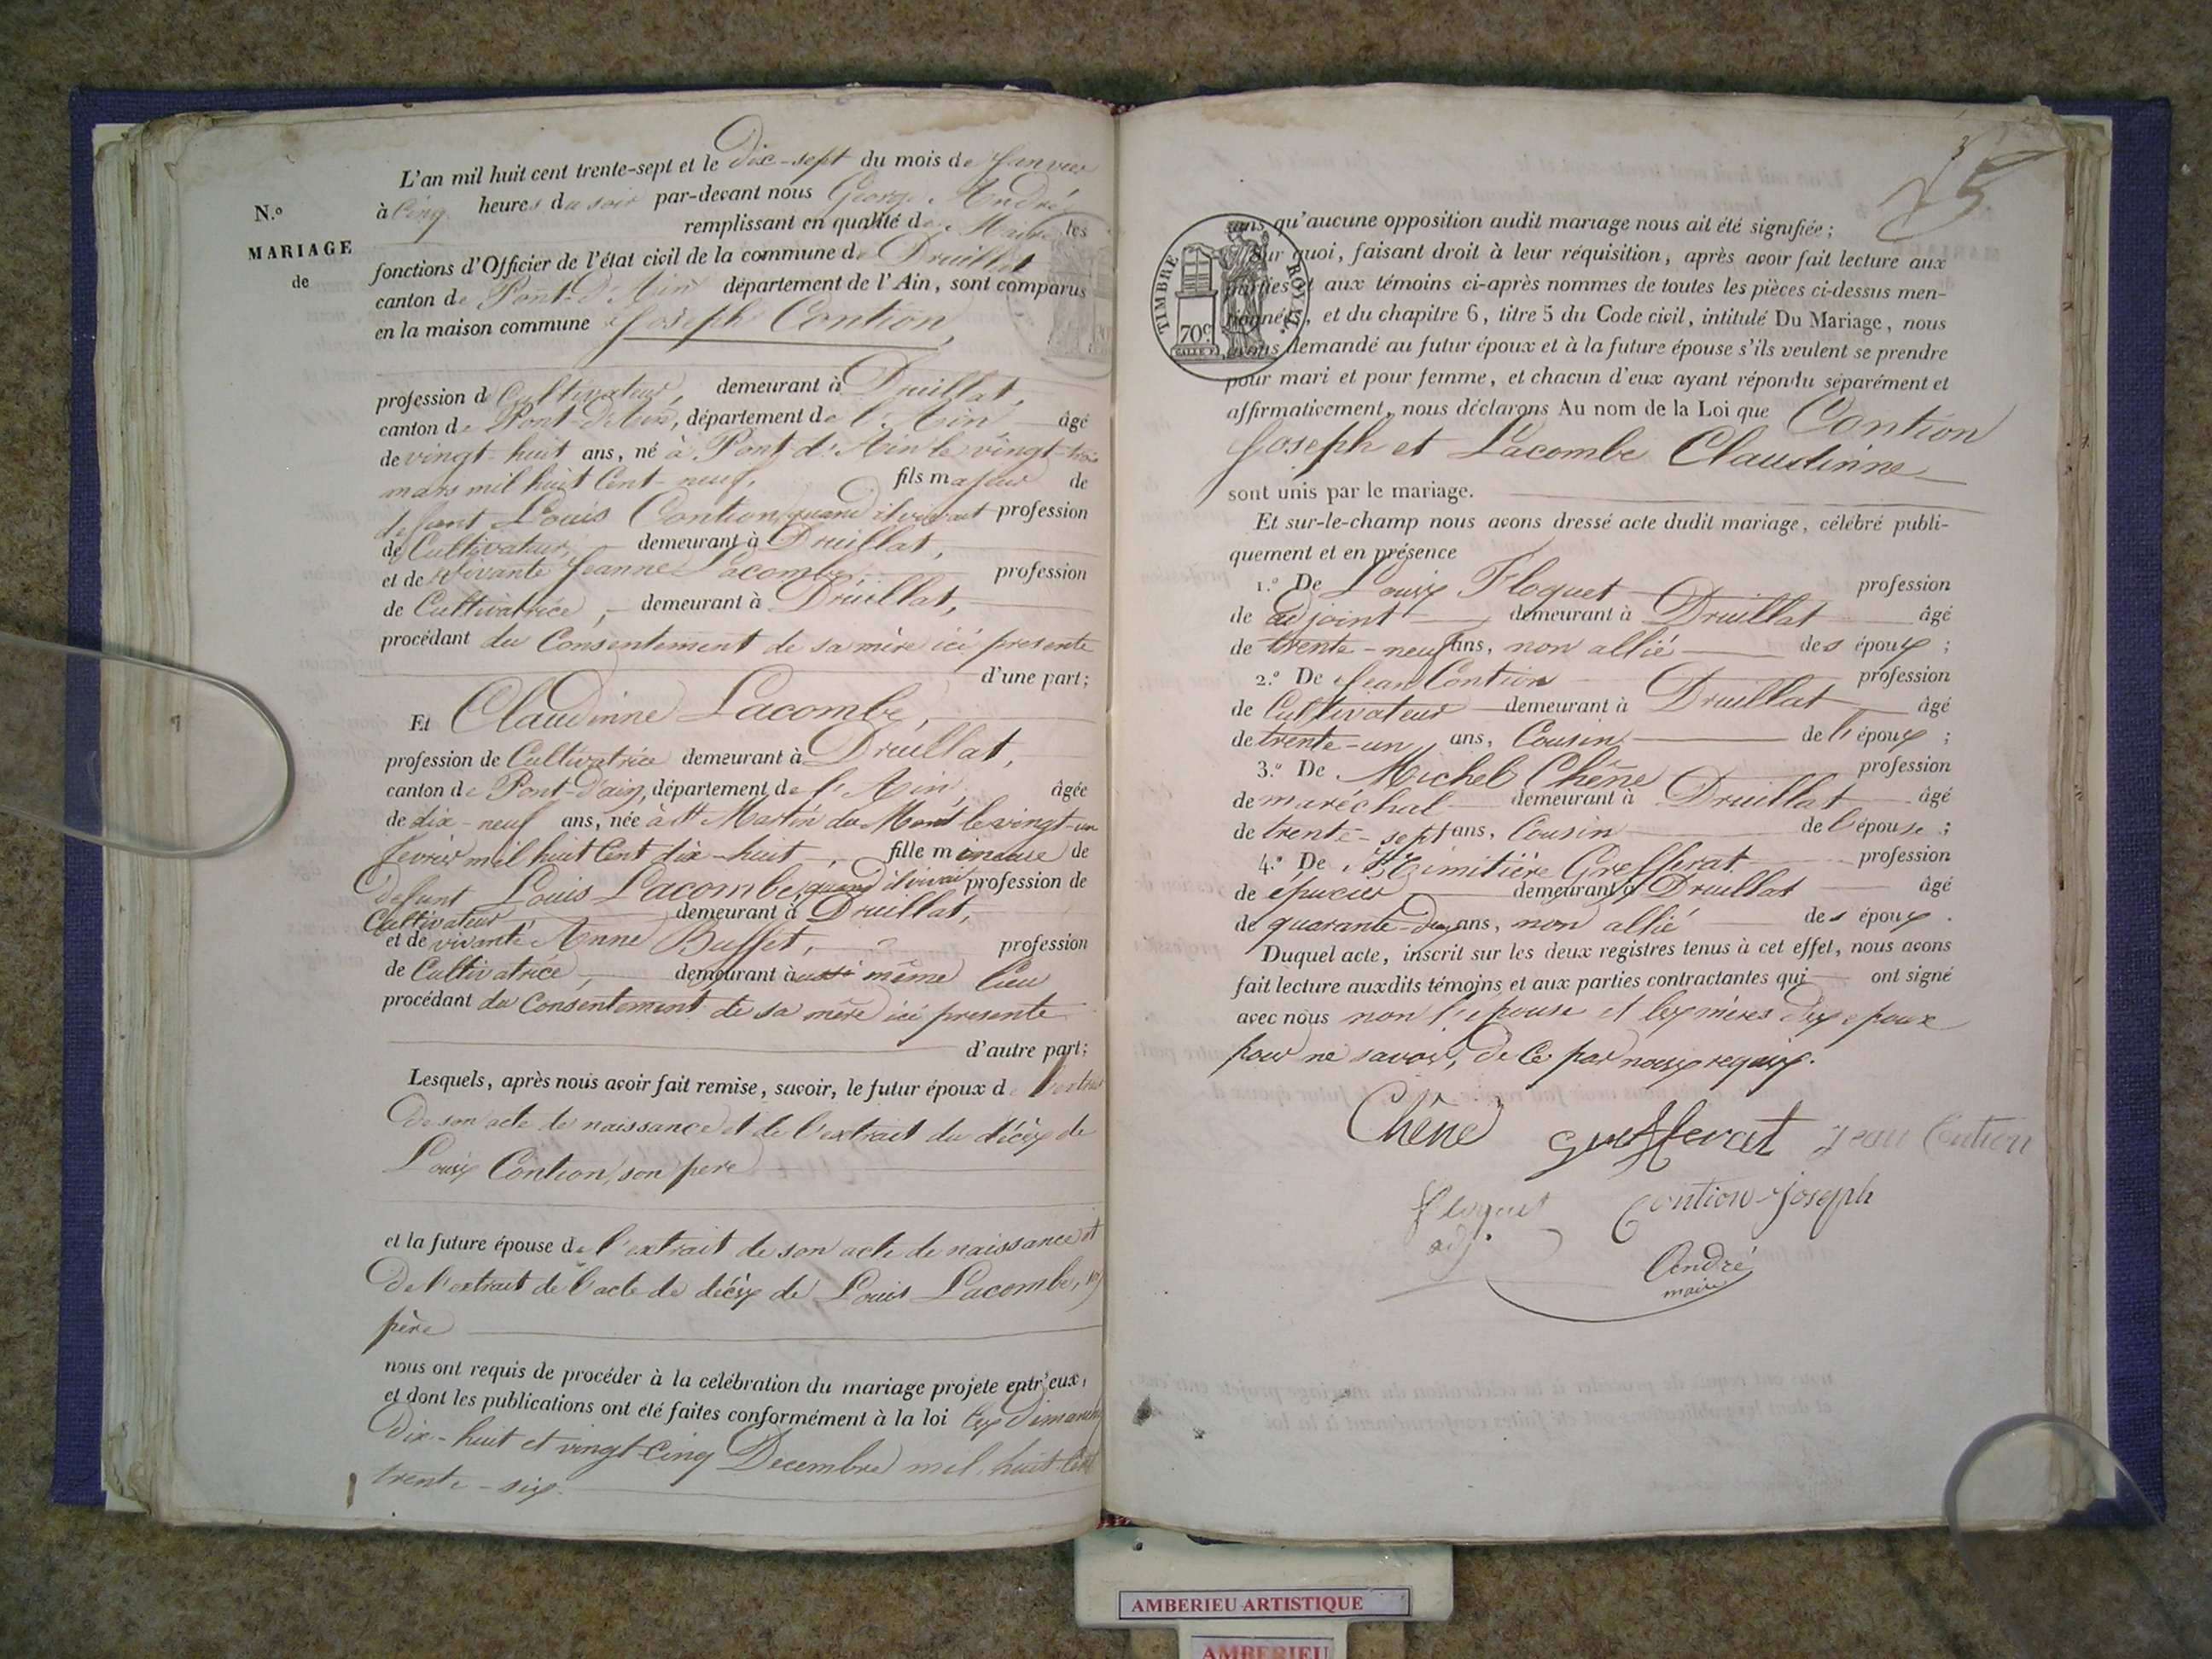 N.º
MARIAGE
de
L'an mil huit cent trente-sept et le dix-sept du mois de Janvier
à Cinq heures du soir par-devant nous George André
remplissant en qualité de Maire les
fonctions d'Officier de l'état civil de la commune de Druillat
canton de Pont-d'Ain département de l'Ain, sont comparus
en la maison commune Joseph Contion,
profession de Cultivateur, demeurant à Druillat,
canton de Pont-d'Ain, département de l'Ain, âgé
de vingt-huit ans, né à Pont d'Ain le vingt-trois
mars mil huit Cent-neuf, fils majeur de
défunt Louis Contion, quand il vivait profession
de Cultivateur, demeurant à Druillat,
et de vivante Jeanne Lacombe, profession
de Cultivatrice, demeurant à Druillat,
procédant du Consentement de sa mère ici presente
d'une part;
Et Claudinne Lacombe,
profession de Cultivatrice demeurant à Druillat,
canton de Pont-d'ain, département de l'Ain, âgée
de dix-neuf ans, née à St Martin du Mont le vingt-un
fevrier mil huit Cent dix-huit, fille mineure de
Defunt Louis Lacombe, quand il vivait profession de
Cultivateur demeurant à Druillat,
et de vivante Anne Buffet, profession
de Cultivatrice, demeurant à aussi même lieu
procédant du Consentement de sa mère ici presente
d'autre part;
Lesquels, après nous avoir fait remise, savoir, le futur époux de l'extrait
De son acte de naissance et de l'extrait du décès de
Louis Contion, son pere
et la future épouse de l'extrait de son acte de naissance et
De l'extrait de l'acte de décès de Louis Lacombe, son
père
nous ont requis de procéder à la celébration du mariage projeté entr'eux,
et dont les publications ont été faites conformément à la loi les Dimanches
Dix-huit et vingt-Cinq Decembre mil huit-Cent
trente-six.
5
TIMBRE ROYAL
70c
sans qu'aucune opposition audit mariage nous ait été signifiée;
Sur quoi, faisant droit à leur réquisition, après avoir fait lecture aux
parties et aux témoins ci-après nommes de toutes les pièces ci-dessus men-
tionnées, et du chapitre 6, titre 5 du Code civil, intitulé Du Mariage, nous
avons demandé au futur époux et à la future épouse s'ils veulent se prendre
pour mari et pour femme, et chacun d'eux ayant répondu séparément et
affirmativement, nous déclarons Au nom de la Loi que Contion
Joseph et Lacombe Claudinne
sont unis par le mariage.
Et sur-le-champ nous avons dressé acte dudit mariage, célébré publi-
quement et en présence
1.º De Louis Floquet profession
de adjoint demeurant à Druillat âgé
de trente-neuf ans, non allié des époux;
2.º De Jean Contion profession
de Cultivateur demeurant à Druillat âgé
de trente-un ans, Cousin de l'époux;
3.º De Michel Chêne profession
de maréchal demeurant à Druillat âgé
de trente-sept ans, Cousin de l'épouse;
4.º De Greffevat profession
de épicier demeurant à Druillat âgé
de quarante-deux ans, non allié des époux.
Duquel acte, inscrit sur les deux registres tenus à cet effet, nous avons
fait lecture auxdits témoins et aux parties contractantes qui ont signé
avec nous non l'épouse et les mères des epoux
pour ne savoir, de Ce par nous requis.
Chêne Greffevat Jean Contion
floquet Contion Joseph
adj.
André
maire
AMBERIEU ARTISTIQUE
AMBERIEU